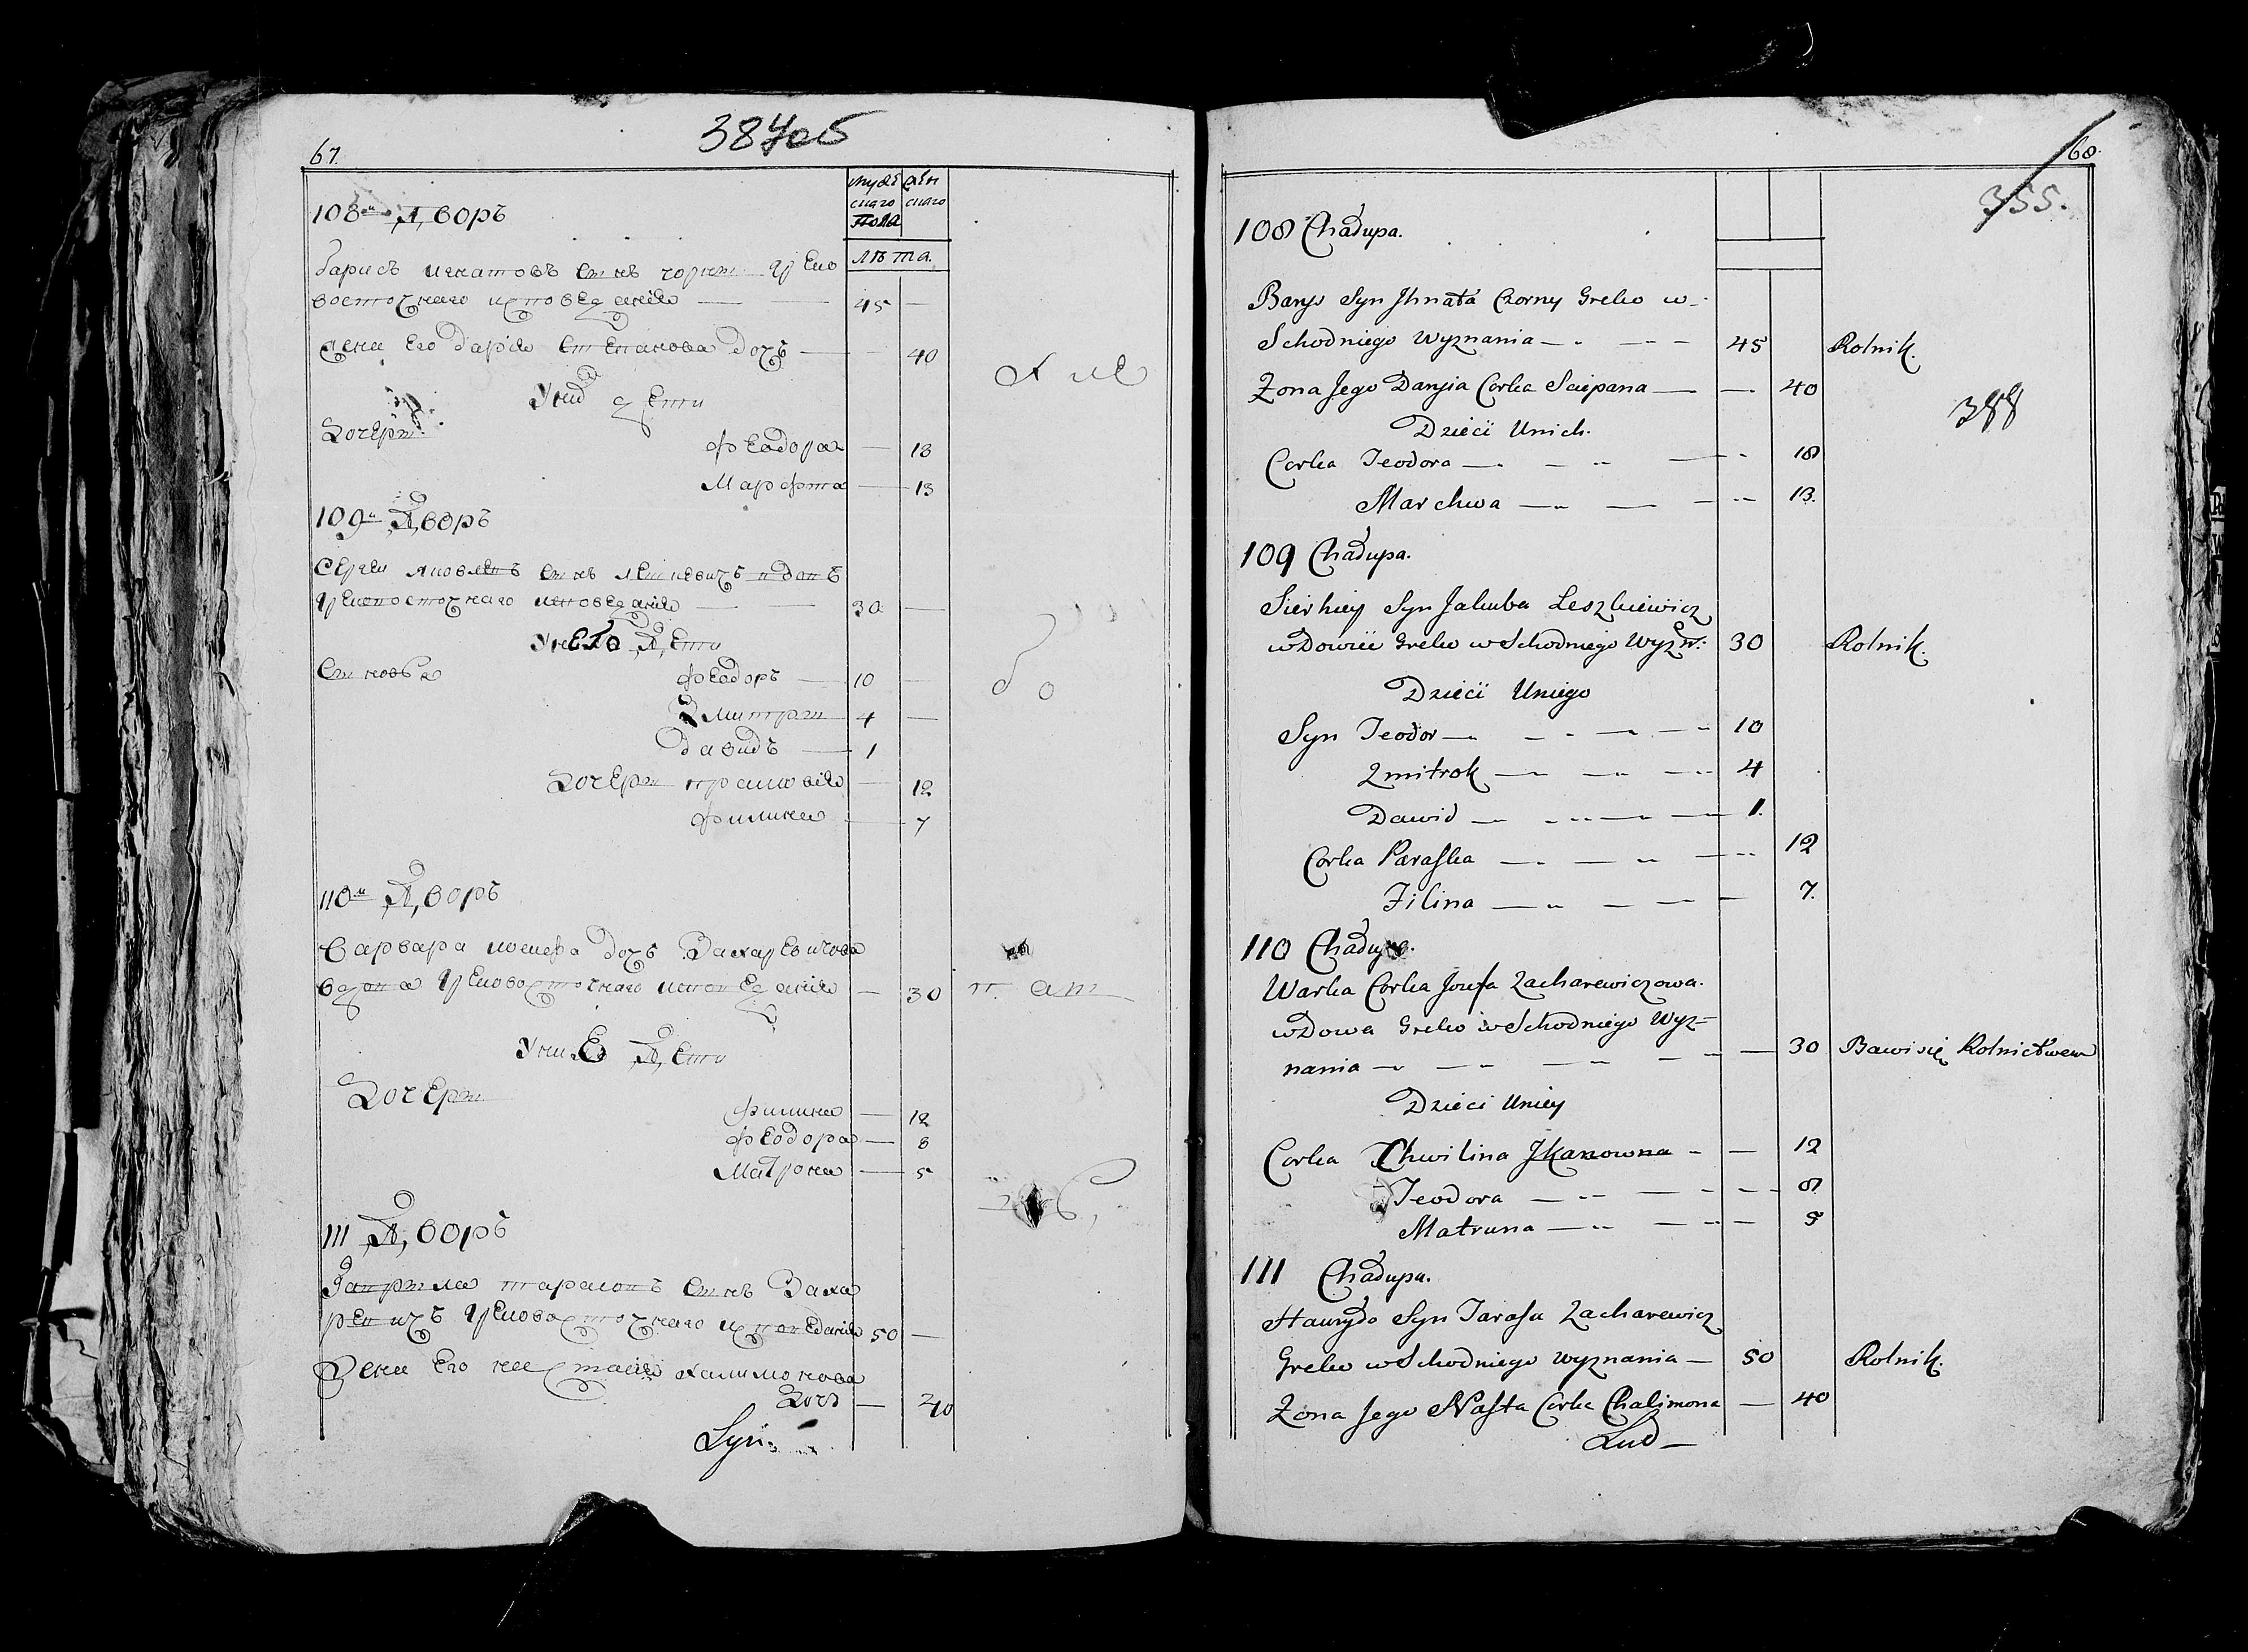 38705
67.
мужескаго пола женскаго
лѣта.
108й Дворъ
Барисъ Игнатовъ сынъ Чорны Греко
восточнаго исповеданія — 45 —
Жена Его Дарья Степанова дочь — 40
У них дети
Дочери
Феодора — 13
Марфта — 13
109й Дворъ
Сергеи Яковлевъ сынъ Лешкевичъ вдовъ
Грековосточнаго исповеданія — 30 —
У нево Дети
Сыновья Феодоръ — 10 —
Дмитри — 4 —
Давидъ — 1
Дочери Прасковія — 12
Филина — 7
110й Дворъ
Варвара Иосифа дочь Захаревичова
вдова Грековосточнаго исповеданія — 30
У ние Дети
Дочери
Филина — 12
Феодора — 8
Матрона — 5
111 Дворъ
Гаврила Тарасовъ сынъ Заха
ревичъ Грековосточнаго исповеданія 50 —
Жена Его Настасія Халимонова
дочь — 40
Syn
68.
355.
108 Chałupa.
Barys Syn Jhnata Czorny Greko w-
Schodniego Wyznania — 45 Rolnik.
Zona Jego Daryia Corka Sciepana — 40
388
Dzieci Unich.
Corka Teodora — 18
Marchwa — 13.
109 Chałupa.
Sierhiey Syn Jakuba Leszkiewicz
wdowiec Greko wSchodniego Wyzn: 30 Rolnik.
Dzieci Uniego
Syn Teodor — 10
Zmitrok — 4
Dawid — 1.
Corka Paraska — 12
Filina — 7.
110 Chałupa.
Warka Corka Jozefa Zacharewiczowa.
wdowa Greko wSchodniego Wyz=
nania — 30 Bawi się Rolnictwem
Dzieci Uniey
Corka Chwilina Jkanowna — 12
Teodora — 8.
Matruna — 5
111 Chałupa.
Hauryło Syn Tarasa Zacharewicz
Greko wSchodniego wyznania — 50 Rolnik.
Zona Jego Nasta Corka Chalimona — 40
Lud —